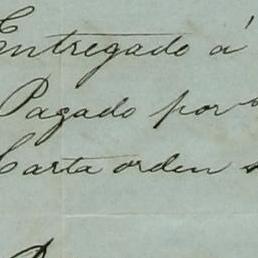 Entregado á
Pagado por
Carta orden